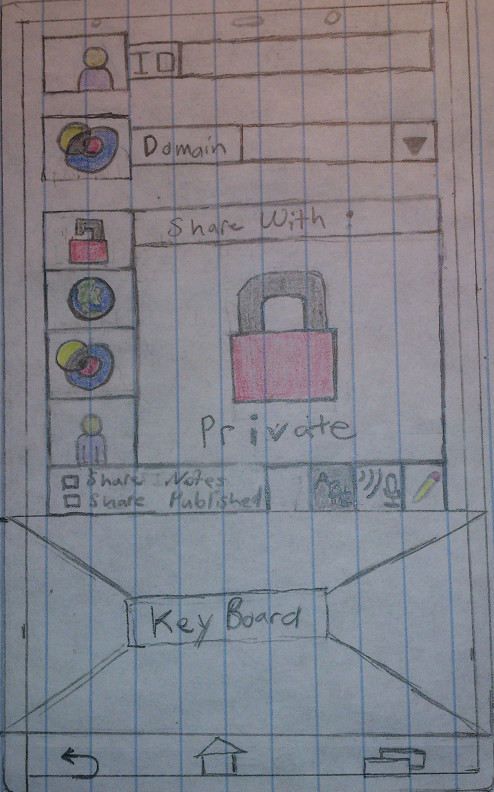 ID
Domain
Share With :
Private
Share Notes
Share Published
Key Board